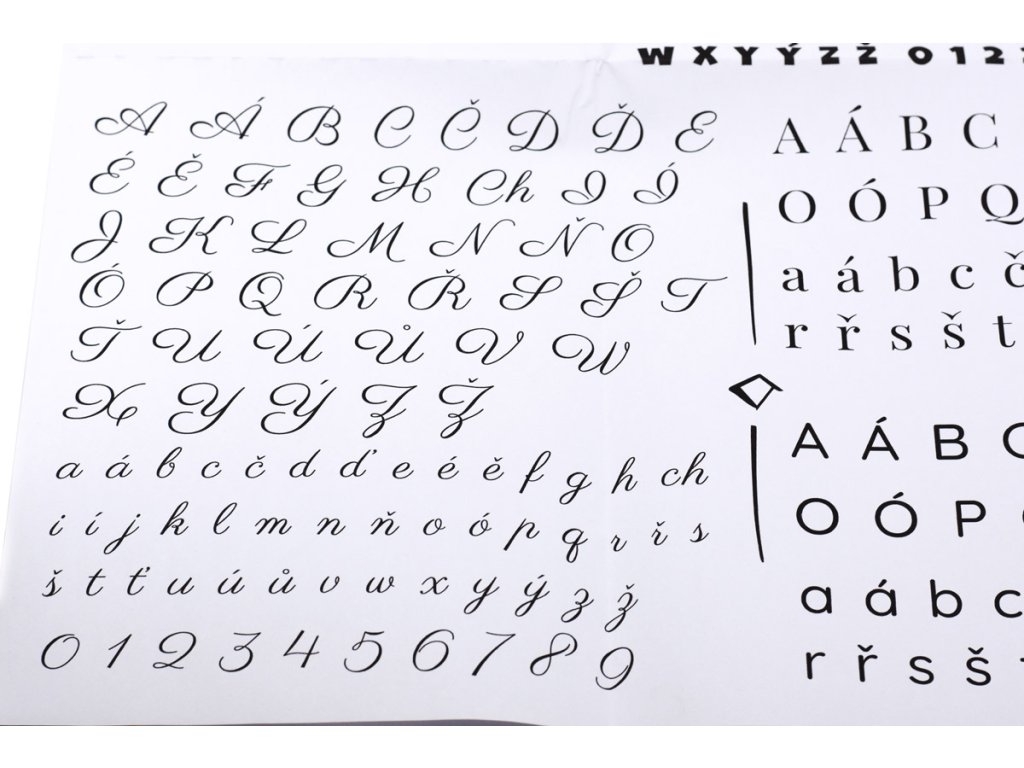 W X Y Ý Z Ž 0 1 2
A Á B C Č D Ď E
É Ě F G H Ch I Í
J K L M N Ň O
Ó P Q R Ř S Š T
Ť U Ú Ů V W
X Y Ý Z Ž
a á b c č d ď e é ě f g h ch
i í j k l m n ň o ó p q r ř s
š t ť u ú ů v w x y ý z ž
0 1 2 3 4 5 6 7 8 9
A Á B C
O Ó P Q
a á b c č
r ř s š t
A Á B C
O Ó P
a á b c
r ř s š